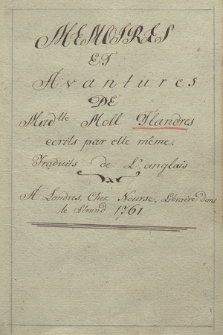 MEMOIRES
ET
Avantures
DE
Mad.lle Moll Flandres
ecrits par elle même.
Traduits de L'anglais
A Londres, Chez Nourse, Libraire dans
le Strand 1761